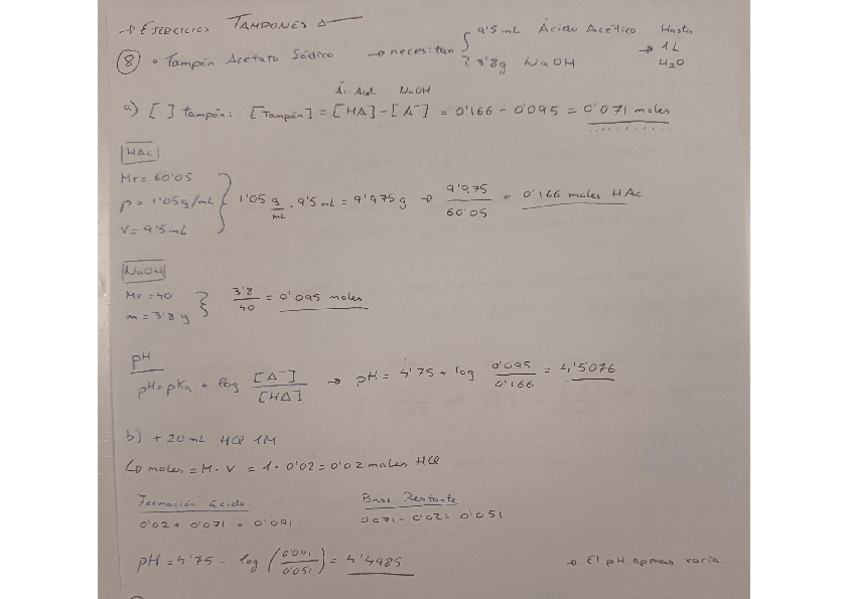 → EJERCICIOS TAMPONES
⑧ • Tampón Acetato Sódico → necesitan { 9'5 mL Ácido Acético Hasta → 1 L
3'8g NaOH H₂O
Ác. Acét NaOH
a) [ ] tampón: [Tampón] = [HA] - [A⁻] = 0'166 - 0'095 = 0'071 moles
HAc
Mr = 60'05
ρ = 1'05 g/mL } 1'05 g/mL · 9'5 mL = 9'975 g → 9'975/60'05 = 0'166 moles HAc
V = 9'5 mL
NaOH
Mr = 40
m = 3'8 g } 3'8/40 = 0'095 moles
pH
pH = pKa + log [A⁻]/[HA] → pH = 4'75 + log 0'095/0'166 = 4'5076
b) + 20 mL HCl 1M
↳ moles = M · V = 1 · 0'02 = 0'02 moles HCl
Formación ácido Base Restante
0'02 + 0'071 = 0'091 0'071 - 0'02 = 0'051
pH = 4'75 - log (0'091/0'051) = 4'4985 → El pH apenas varía.